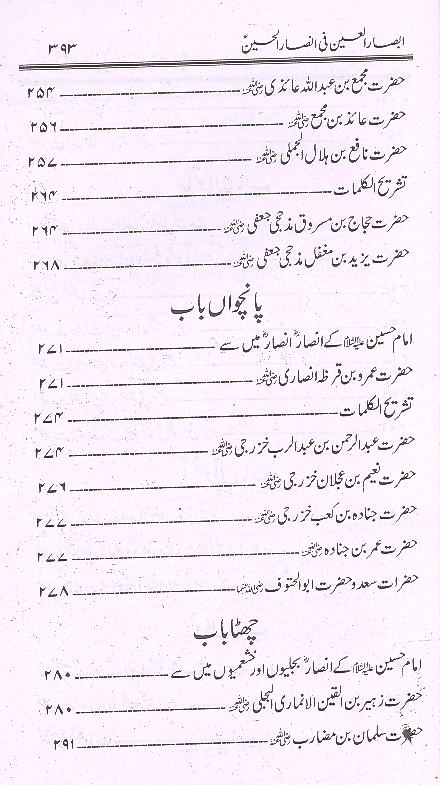 ابصار العین فی انصار الحسینؑ ۳۹۳
حضرت مجمع بن عبداللہ عائذی رضی اللہ عنہ ۲۵۴
حضرت عائذ بن مجمع رضی اللہ عنہ ۲۵۶
حضرت نافع بن ہلال الجملی رضی اللہ عنہ ۲۵۷
تشریح الکلمات ۲۶۴
حضرت حجاج بن مسروق مذحجی جعفی رضی اللہ عنہ ۲۶۴
حضرت یزید بن مغفل مذحجی جعفی رضی اللہ عنہ ۲۶۸
پانچواں باب
امام حسین علیہ السلام کے انصارؓ انصارؓ میں سے ۲۷۱
حضرت عمرو بن قرظہ انصاری رضی اللہ عنہ ۲۷۱
تشریح الکلمات ۲۷۴
حضرت عبدالرحمن بن عبدالرب خزرجی رضی اللہ عنہ ۲۷۴
حضرت نعیم بن عجلان خزرجی رضی اللہ عنہ ۲۷۶
حضرت جنادہ بن کعب خزرجی رضی اللہ عنہ ۲۷۷
حضرت عمر بن جنادہ رضی اللہ عنہ ۲۷۷
حضرات سعد و حضرت ابوالحتوف رضی اللہ عنہما ۲۷۸
چھٹا باب
امام حسین علیہ السلام کے انصارؓ بجلیوں اور خثعمیوں میں سے ۲۸۰
حضرت زہیر بن القین الانماری البجلی رضی اللہ عنہ ۲۸۰
حضرت سلمان بن مضارب رضی اللہ عنہ ۲۹۱